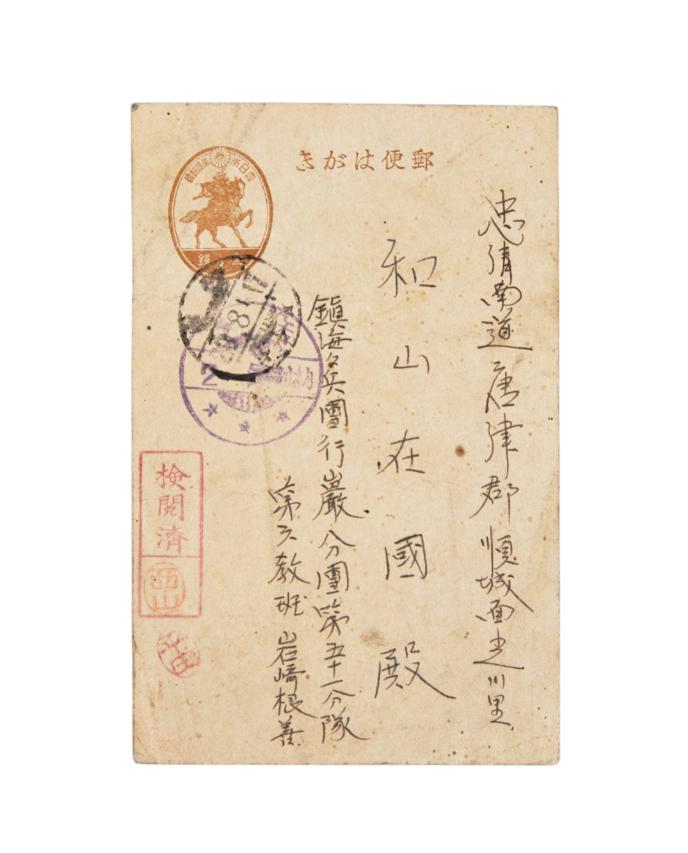 郵便はがき
忠清南道唐津郡順城面
川里
和山在國殿
鎭海兵團行巖分團第五十一分隊
第六教班 岩崎根善
検閲済
西山